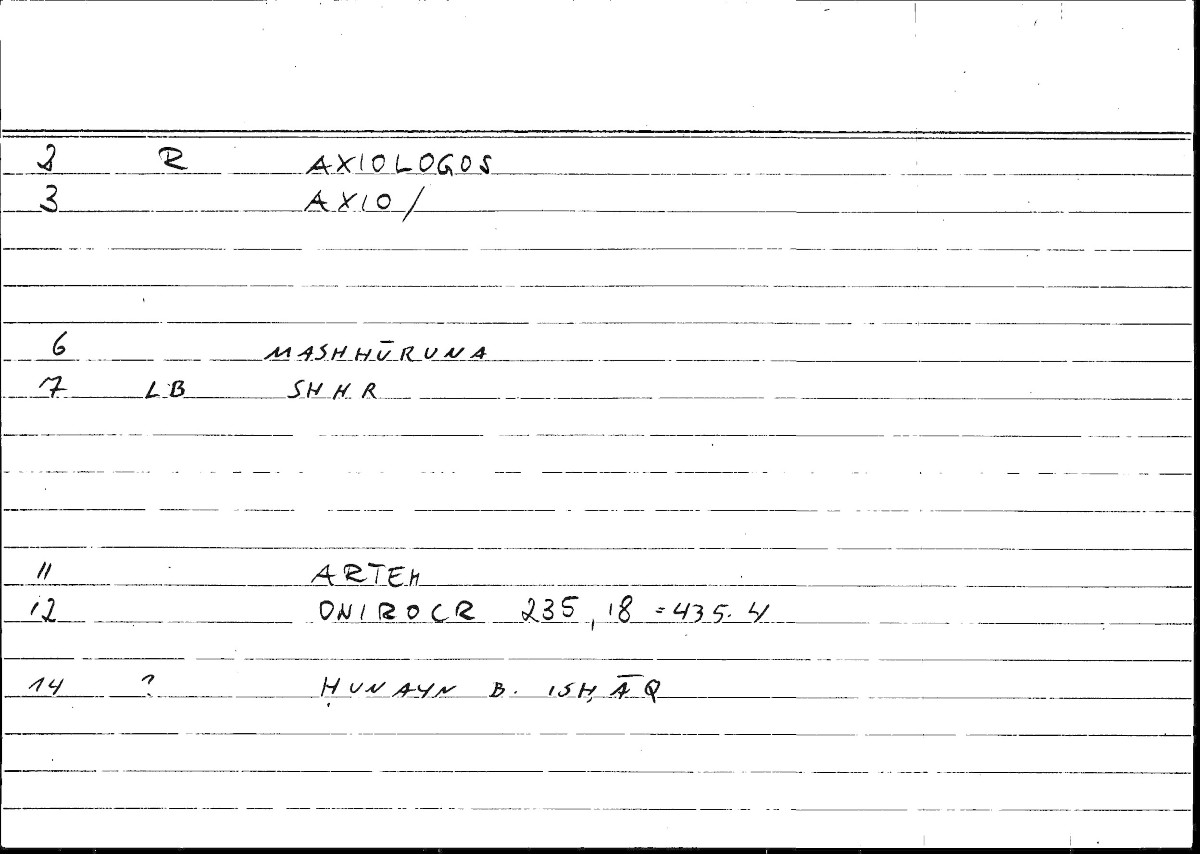 2 R AXIOLOGOS
3 AXIO/
6 MASHHŪRUNA
7 LB SHHR
11 ARTEM
12 ONIROCR 235,18 = 435.4
14 ? ḤUNAYN B. ISḤĀQ